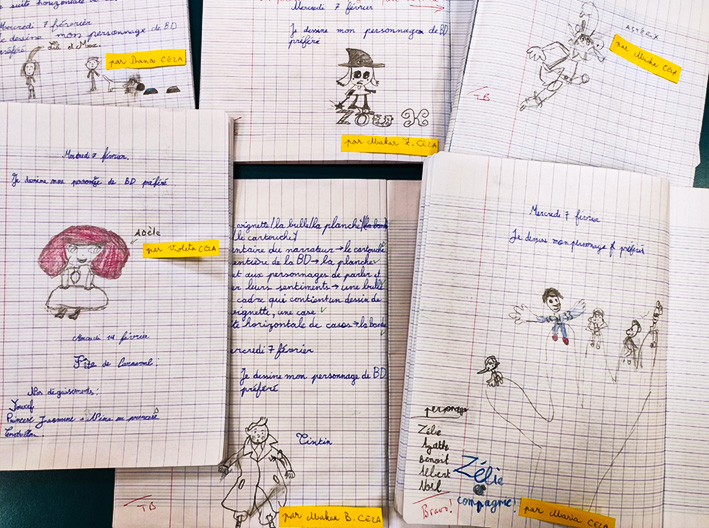 suite horizontale de
Mercredi 7 février
Je dessine mon personnage de BD
préféré
par Ihanai CE2A
Mercredi 7 février
Je dessine mon personnage de BD
préféré
ZOMBI
par Mahar H. CE2A
ASTÉRIX
TB
Mercredi 7 février.
Je dessine mon personnage de BD préféré
ADÈLE
par Violeta CE2A
Mercredi 14 février
Fête de Carnaval:
vignette/la bulle/la planche/la bande
/le cartouche/
entaire du narrateur → le cartouche
entière de la BD → la planche
et aux personnages de parler et
er leurs sentiments → une bulle
cadre qui contient un dessin de
vignette, une case
te horizontale de cases → la bande
ercredi 7 février
Je dessine mon personnage de BD
préféré
Tintin
TB
par Mahar B. CE2A
Mercredi 7 février
Je dessine mon personnage préféré
personnages
Zélie
Agathe
Benoit
Albert
Noël
Zélie
et
compagnie!
Bravo!
par Maria CE2A